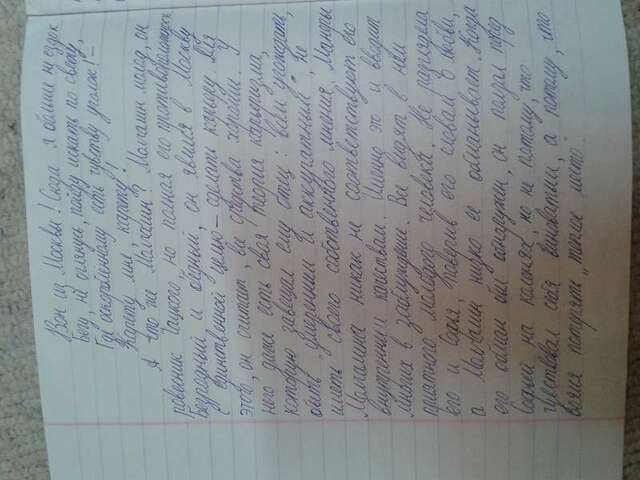 Вон из Москвы! Сюда я больше не ездок.
Бегу, не оглянусь, пойду искать по свету,
Где оскорбленному есть чувству уголок! –
Карету мне, карету!
А что же Молчалин? Молчалин молод, он
ровесник Чацкого, но полная его противоположность.
Безродный и бедный, он явился в Москву
с единственной целью – сделать карьеру. Для
этого, он считает, все средства хороши. У
него даже есть своя теория
которую завещал ему отец: "всем угождать,
быть умеренным и аккуратным". Не
иметь своего собственного мнения. Манеры
Молчалина никак не соответствует его
внутренним качествам. Именно это и вводит
многих в заблуждение. Все видят в нём
приятного молодого человека. Не разглядела
его и Софья, поверив его словам о любви,
а Молчалин нагло её обманывает. Когда
его обман был обнаружен, он ползал перед
Софьей на коленях, но не потому, что
чувствовал себя виноватым, а потому, что
боялся потерять "теплое место".